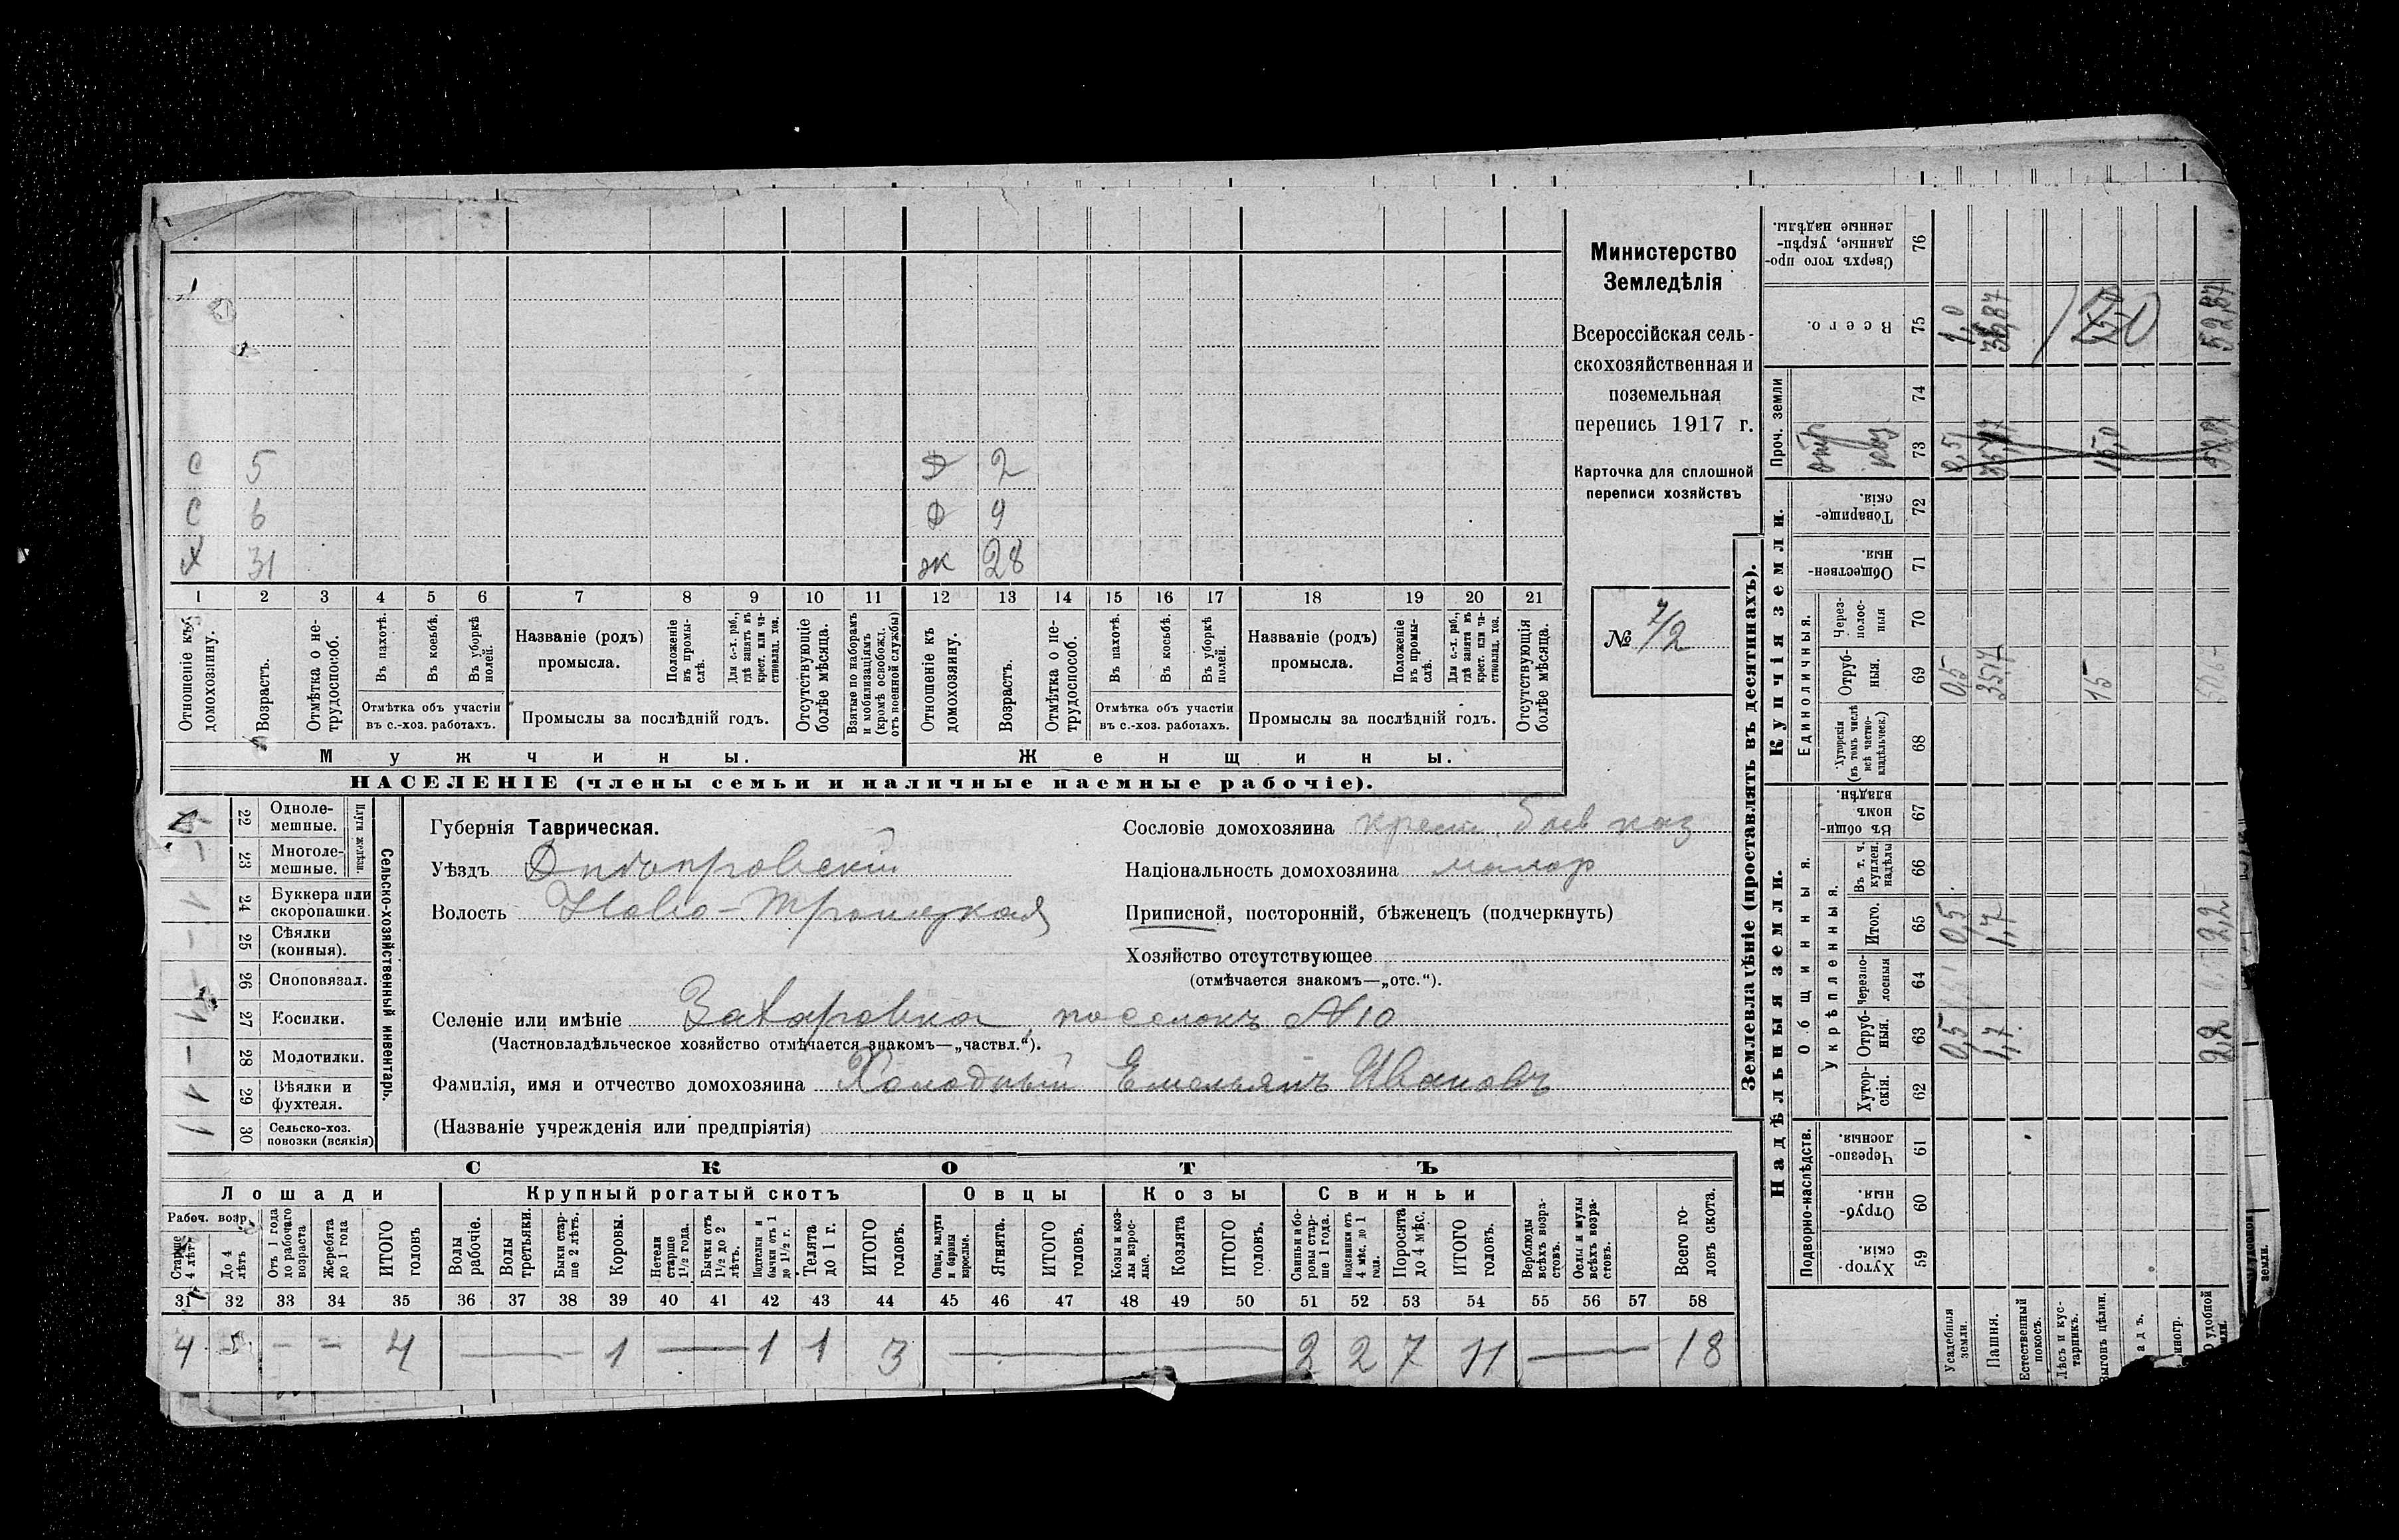 С 5 Д 2
С 6 Д 9
Х 31 ж 28
1 2 3 4 5 6 7 8 9 10 11 12 13 14 15 16 17 18 19 20 21
Отношеніе къ домохозяину.
Возрастъ.
Отмѣтка о не-
трудоспособ.
Въ пахотѣ.
Въ косьбѣ.
Въ уборкѣ
полей.
Отмѣтка объ участіи
въ с.-хоз. работахъ.
Названіе (родъ)
промысла.
Положеніе
въ промы-
слѣ.
Для с.-х. раб.,
гдѣ занятъ въ
крест. или ча-
стновлад. хоз.
Промыслы за послѣдній годъ.
Отсутствующіе
болѣе мѣсяца.
Взятые по наборамъ
и мобилизаціямъ
(кромѣ освобожд.
отъ военной службы)
Отношеніе къ
домохозяину.
Возрастъ.
Отмѣтка о не-
трудоспособ.
Въ пахотѣ.
Въ косьбѣ.
Въ уборкѣ
полей.
Отмѣтка объ участіи
въ с.-хоз. работахъ.
Названіе (родъ)
промысла.
Положеніе
въ промы-
слѣ.
Для с.-х. раб.,
гдѣ занята въ
крест. или ча-
стновлад. хоз.
Промыслы за послѣдній годъ.
Отсутствующія
болѣе мѣсяца.
Мужчины. Женщины.
НАСЕЛЕНІЕ (члены семьи и наличные наемные рабочіе).
Министерство
Земледѣлія
Всероссійская сель-
скохозяйственная и
поземельная
перепись 1917 г.
Карточка для сплошной
переписи хозяйствъ
№ 7/2
Сельско-хозяйственный инвентарь.
Плуги желѣзн.
22 Одноле-
мешные.
23 Многоле-
мешные.
24 Буккера или
скоропашки.
25 Сѣялки
(конныя).
26 Сноповязал.
27 Косилки.
28 Молотилки.
29 Вѣялки и
фухтеля.
30 Сельско-хоз.
повозки (всякія)
Губернія Таврическая.
Уѣздъ Днѣпровскій
Волость Ново-Троицкая
Сословіе домохозяина крест.
Національность домохозяина малор
Приписной, посторонній, бѣженецъ (подчеркнуть)
Хозяйство отсутствующее
(отмѣчается знакомъ—„отс.“).
Селеніе или имѣніе Захаровка, поселокъ №10
(Частновладѣльческое хозяйство отмѣчается знакомъ—„частвл.“).
Фамилія, имя и отчество домохозяина Холодный Емельянъ Ивановъ
(Названіе учрежденія или предпріятія)
СКОТЪ
Лошади Крупный рогатый скотъ Овцы Козы Свиньи
Рабоч. возр.
Старше
4 лѣтъ
До 4
лѣтъ
Отъ 1 года
до рабочаго
возраста
Жеребята
до 1 года
ИТОГО
головъ
Волы
рабочіе.
Волы
третьяки.
Быки стар-
ше 2 лѣтъ.
Коровы.
Нетели
старше
1½ года.
Бычки отъ
1½ до 2
лѣтъ.
Подтелки и
бычки отъ 1
до 1½ г.
Телята
до 1 г.
ИТОГО
головъ.
Овцы, валухи
и бараны
взрослые.
Ягнята.
ИТОГО
головъ.
Козы и коз-
лы взрос-
лые.
Козлята
ИТОГО
головъ.
Свиньи и бо-
ровы стар-
ше 1 года.
Подсвинки отъ
4 мѣс. до 1
года.
Поросята
до 4 мѣс.
ИТОГО
головъ.
Верблюды
всѣхъ возра-
стовъ.
Ослы и мулы
всѣхъ возра-
стовъ.
Всего го-
ловъ скота.
31 32 33 34 35 36 37 38 39 40 41 42 43 44 45 46 47 48 49 50 51 52 53 54 55 56 57 58
4 – – 4 — 1 — 1 1 3 — 2 2 7 11 — 18
Землевладѣніе (проставлять въ десятинахъ).
Надѣльныя земли. Купчія земли. Проч. земли
Подворно-наслѣдств.
Общинныя.
Укрѣпленныя.
Единоличныя.
59 Хутор-
скія.
60 Отруб-
ныя.
61 Черезпо-
лосныя.
62 Хутор-
скія.
63 Отруб-
ныя. 0,5 1,7 2,2
64 Черезпо-
лосныя
65 Итого. 0,5 1,7 2,2
66 Въ т. ч.
куплен.
надѣлы
67 Въ общин-
номъ
владѣн.
68 Хуторскія
(въ томъ числѣ
всѣ частно-
владѣльческ.)
69 Отруб-
ныя. 0,5 35,17 15 50,67
70 Через-
полос-
ныя
71 Обществен-
ныя.
72 Товарище-
скія.
73
74
75 Всего. 1,0 36,87 52,87
76 Сверхъ того про-
данные, укрѣп-
ленные надѣлы.
Усадебныя
земли.
Пашня.
Естественный
покосъ.
Лѣсъ и кус-
тарникъ.
Выгонъ цѣлин.